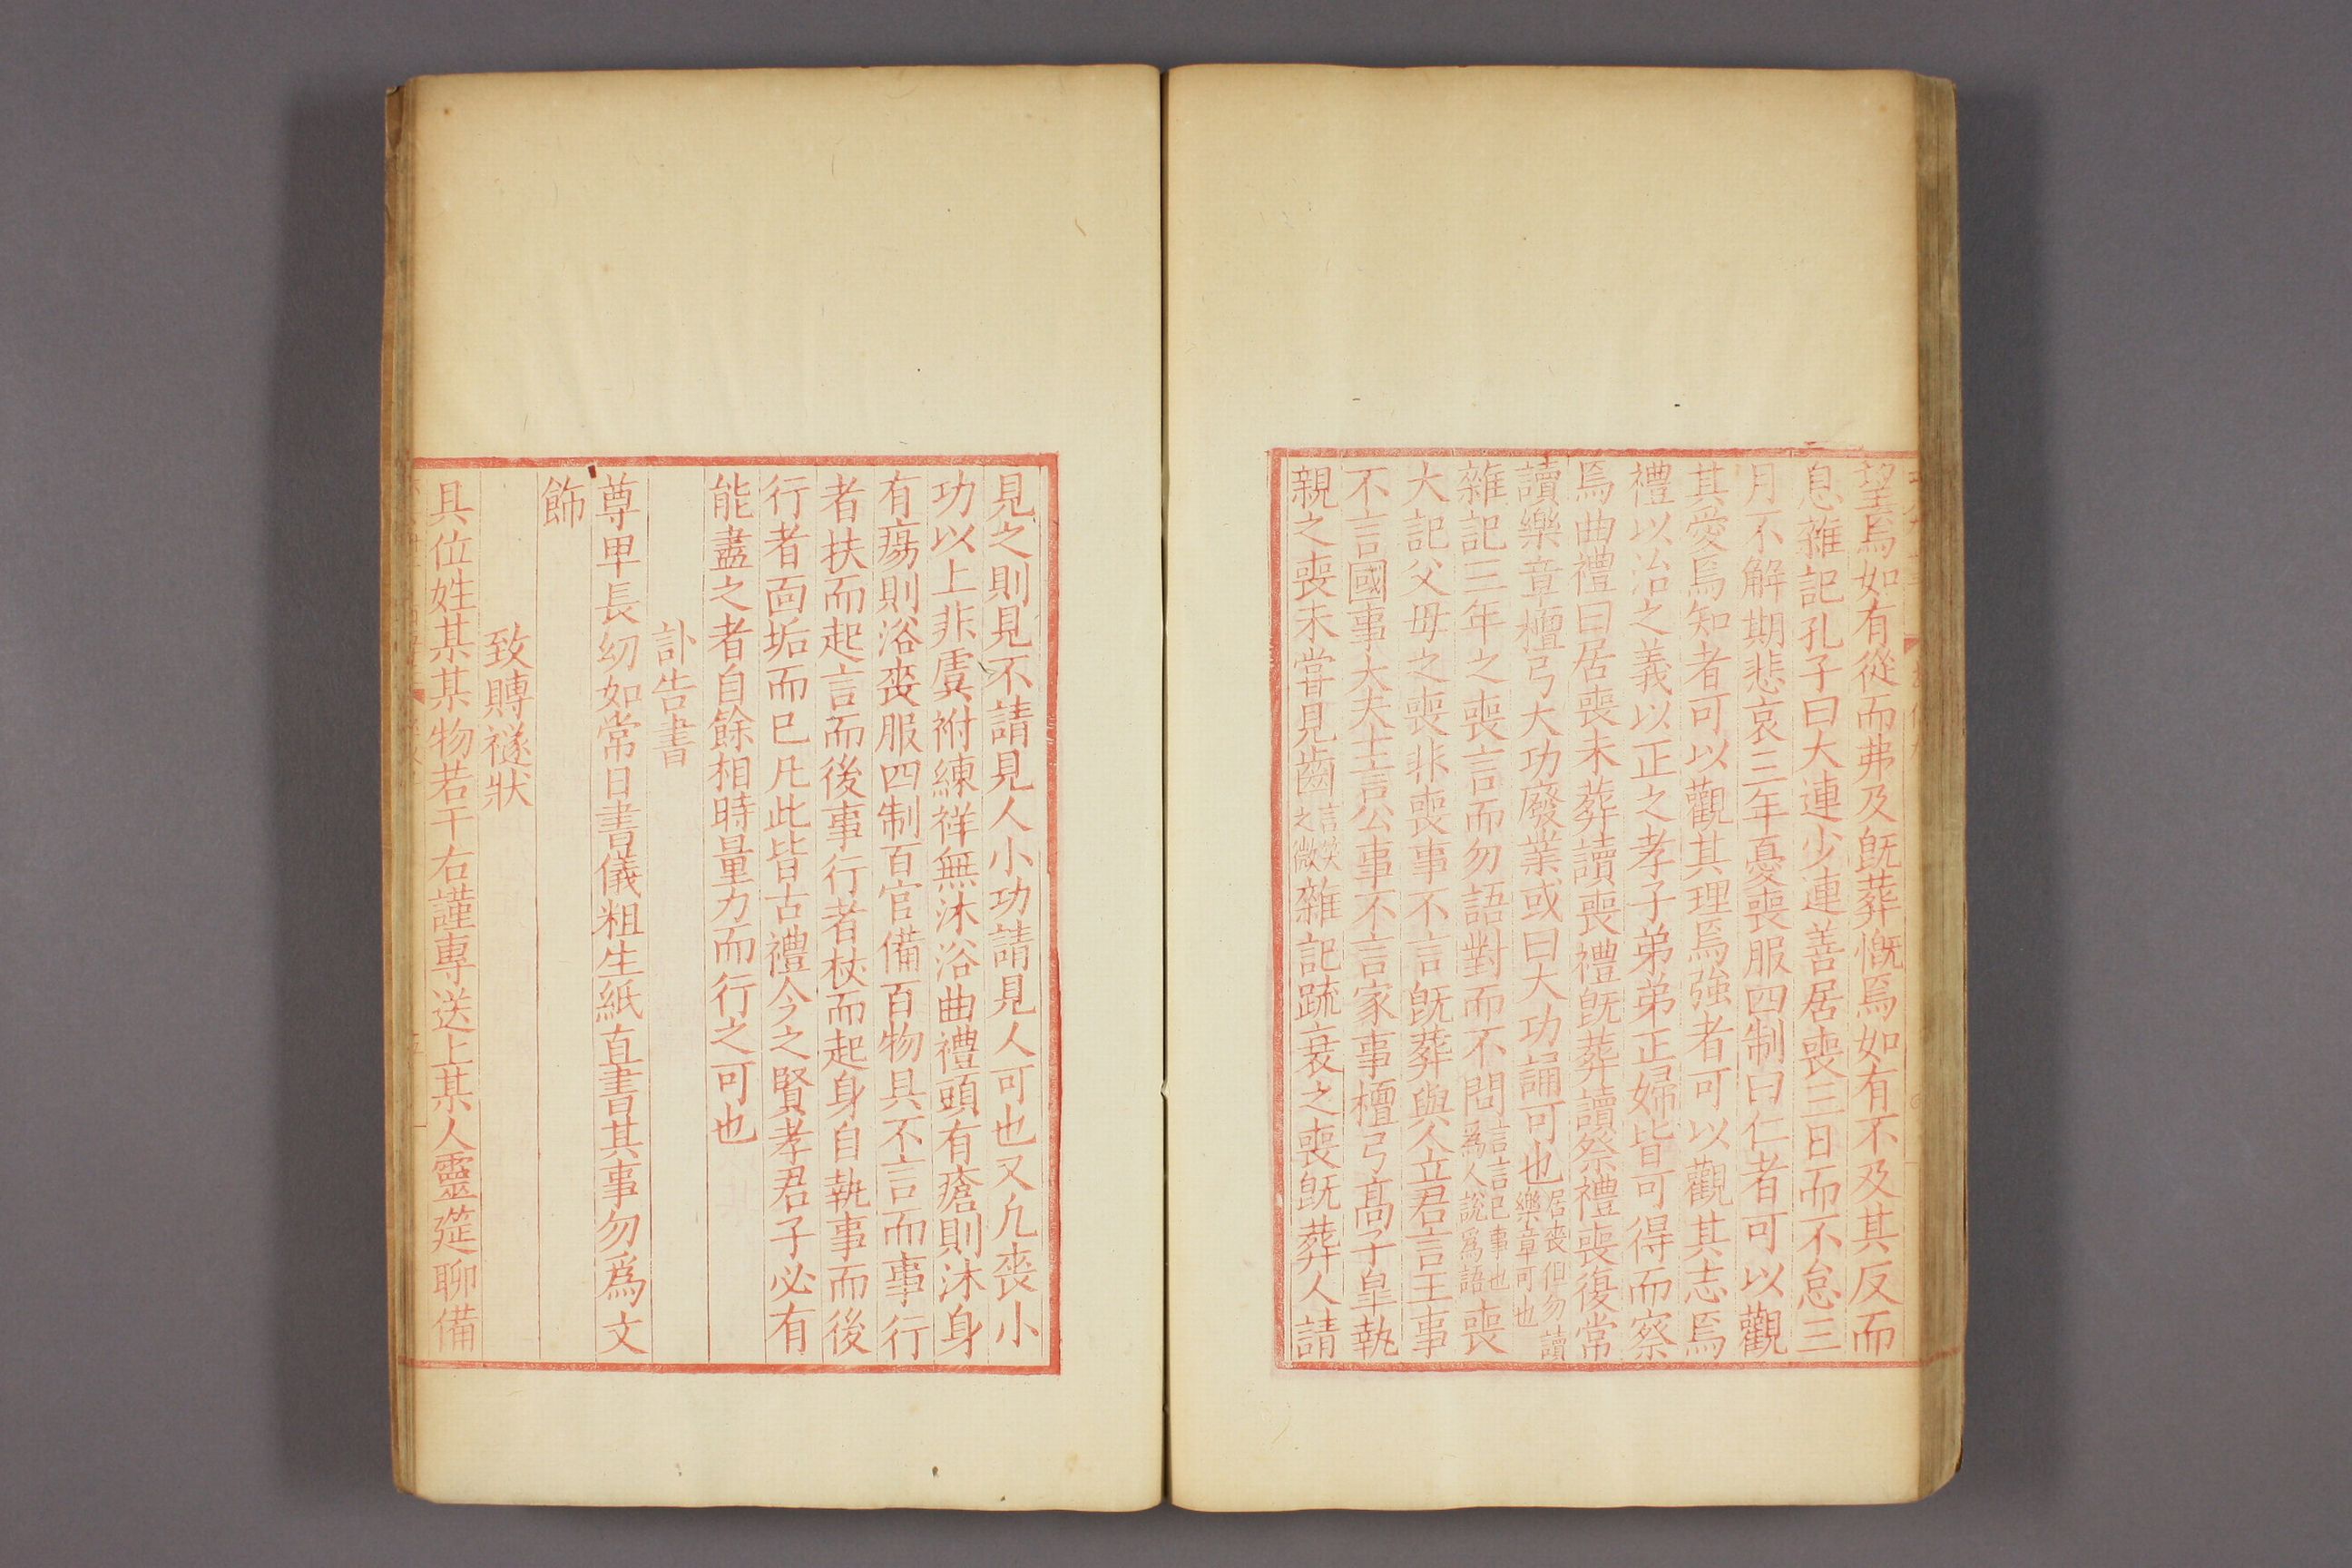 望焉如有從而弗及旣葬慨焉如有不及其反而
息雜記孔子曰大連少連善居喪三日而不怠三
月不解期悲哀三年憂喪服四制曰仁者可以觀
其愛焉知者可以觀其理焉強者可以觀其志焉
禮以治之義以正之孝子弟弟正婦皆可得而察
焉曲禮曰居喪未葬讀喪禮旣葬讀祭禮喪復常
讀樂章檀弓大功廢業或曰大功誦可也居喪但勿讀樂章可也
雜記三年之喪言而勿語對而不問言言己事也爲人說爲語喪
大記父母之喪非喪事不言旣葬與人立君言王事
不言國事大夫士言公事不言家事檀弓高子皐執
親之喪未甞見齒言笑之微雜記疏衰之喪旣葬人請
見之則見不請見人小功請見人可也又凢丧小
功以上非虞祔練祥無沐浴曲禮頭有瘡則沐身
有瘍則浴丧服四制百官備百物具不言而事行
者扶而起言而後事行者杖而起身自執事而後
行者面垢而已凡此皆古禮今之賢孝君子必有
能盡之者自餘相時量力而行之可也
訃告書
尊甲長幼如常日書儀粗生紙直書其事勿爲文
飾
致賻襚狀
具位姓某某物若干右謹專送上某人靈筵聊備